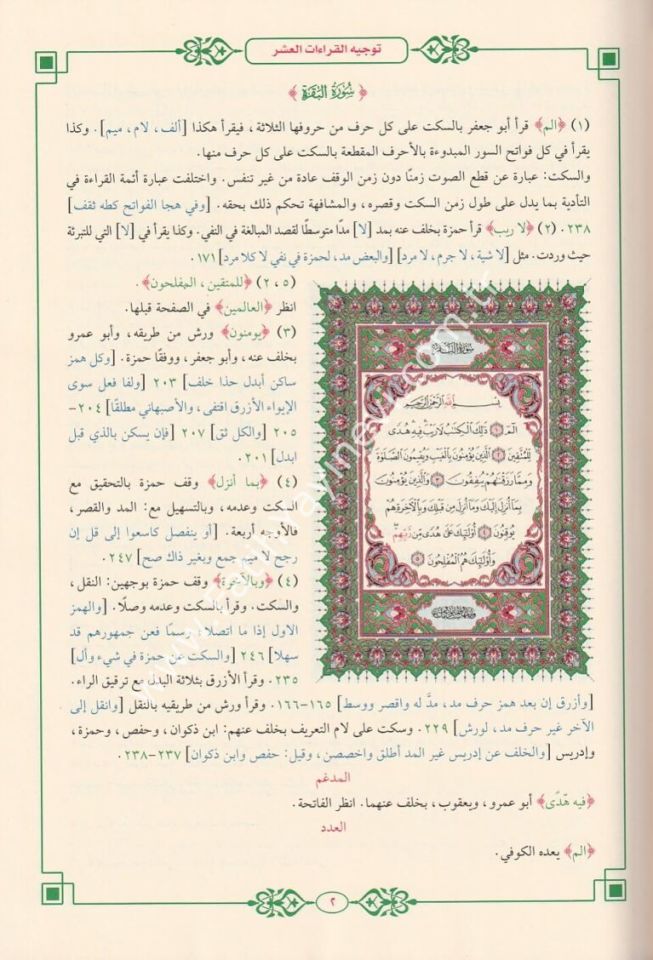 توجيه القراءات العشر
﴿سُورَةُ البَقَرَةِ﴾
(١) ﴿الم﴾ قرأ أبو جعفر بالسكت على كل حرف من حروفها الثلاثة، فيقرأ هكذا [ألف، لام، ميم]. وكذا
يقرأ في كل فواتح السور المبدوءة بالأحرف المقطعة بالسكت على كل حرف منها.
والسكت: عبارة عن قطع الصوت زمنًا دون زمن الوقف عادة من غير تنفس. واختلفت عبارة أئمة القراءة في
التأدية بما يدل على طول زمن السكت وقصره، والمشافهة تحكم ذلك بحقه. [وفي هجا الفواتح كطه ثقف]
٢٣٨. (٢) ﴿لا ريب﴾ قرأ حمزة بخلف عنه بمد [لا] مدًا متوسطًا لقصد المبالغة في النفي. وكذا يقرأ في [لا] التي للتبرئة
حيث وردت. مثل [لا شية، لا جرم، لا مرد] [والبعض مد، لحمزة في نفي لا كلا مرد] ١٧١.
(٢، ٥) ﴿للمتقين، المفلحون﴾.
انظر ﴿العالمين﴾ في الصفحة قبلها.
(٣) ﴿يومنون﴾ ورش من طريقه، وأبو عمرو
بخلف عنه، وأبو جعفر، ووقفًا حمزة. [وكل همز
ساكن أبدل حذا خلف] ٢٠٣ [ولفا فعل سوى
الإيواء الأزرق اقتفى، والأصبهاني مطلقًا] ٢٠٤-
٢٠٥ [والكل ثق] ٢٠٧ [فإن يسكن بالذي قبل
ابدل] ٢٠١.
(٤) ﴿بما أنزل﴾ وقف حمزة بالتحقيق مع
السكت وعدمه، وبالتسهيل مع: المد والقصر،
فالأوجه أربعة. [أو ينفصل كاسعوا إلى قل إن
رجح لا ميم جمع وبغير ذاك صح] ٢٤٧.
(٤) ﴿وبالآخرة﴾ وقف حمزة بوجهين: النقل،
والسكت. وقرأ بالسكت وعدمه وصلًا. [والهمز
الاول إذا ما اتصلا، رسمًا فعن جمهورهم قد
سهلا] ٢٤٦ [والسكت عن حمزة في شيء وأل]
٢٣٥. وقرأ الأزرق بثلاثة البدل مع ترقيق الراء.
سورة البقرة
بسم الله الرحمن الرحيم
الٓمٓ ١ ذَٰلِكَ الْكِتَٰبُ لَا رَيْبَ فِيهِ هُدًى
لِّلْمُتَّقِينَ ٢ الَّذِينَ يُؤْمِنُونَ بِالْغَيْبِ وَيُقِيمُونَ الصَّلَوٰةَ
وَمِمَّا رَزَقْنَٰهُمْ يُنفِقُونَ ٣ وَالَّذِينَ يُؤْمِنُونَ
بِمَا أُنزِلَ إِلَيْكَ وَمَا أُنزِلَ مِن قَبْلِكَ وَبِالْآخِرَةِ هُمْ
يُوقِنُونَ ٤ أُولَٰئِكَ عَلَىٰ هُدًى مِّن رَّبِّهِمْ
وَأُولَٰئِكَ هُمُ الْمُفْلِحُونَ ٥
[وأزرق إن بعد همز حرف مد، مدَّ له واقصر ووسط] ١٦٥-١٦٦. وقرأ ورش من طريقيه بالنقل [وانقل إلى
الآخر غير حرف مد، لورش] ٢٢٩. وسكت على لام التعريف بخلف عنهم: ابن ذكوان، وحفص، وحمزة،
وإدريس [والخلف عن إدريس غير المد أطلق واخصصن، وقيل: حفص وابن ذكوان] ٢٣٧-٢٣٨.
المدغم
﴿فيه هّدًى﴾ أبو عمرو، ويعقوب، بخلف عنهما. انظر الفاتحة.
العدد
﴿الم﴾ يعده الكوفي.
٢